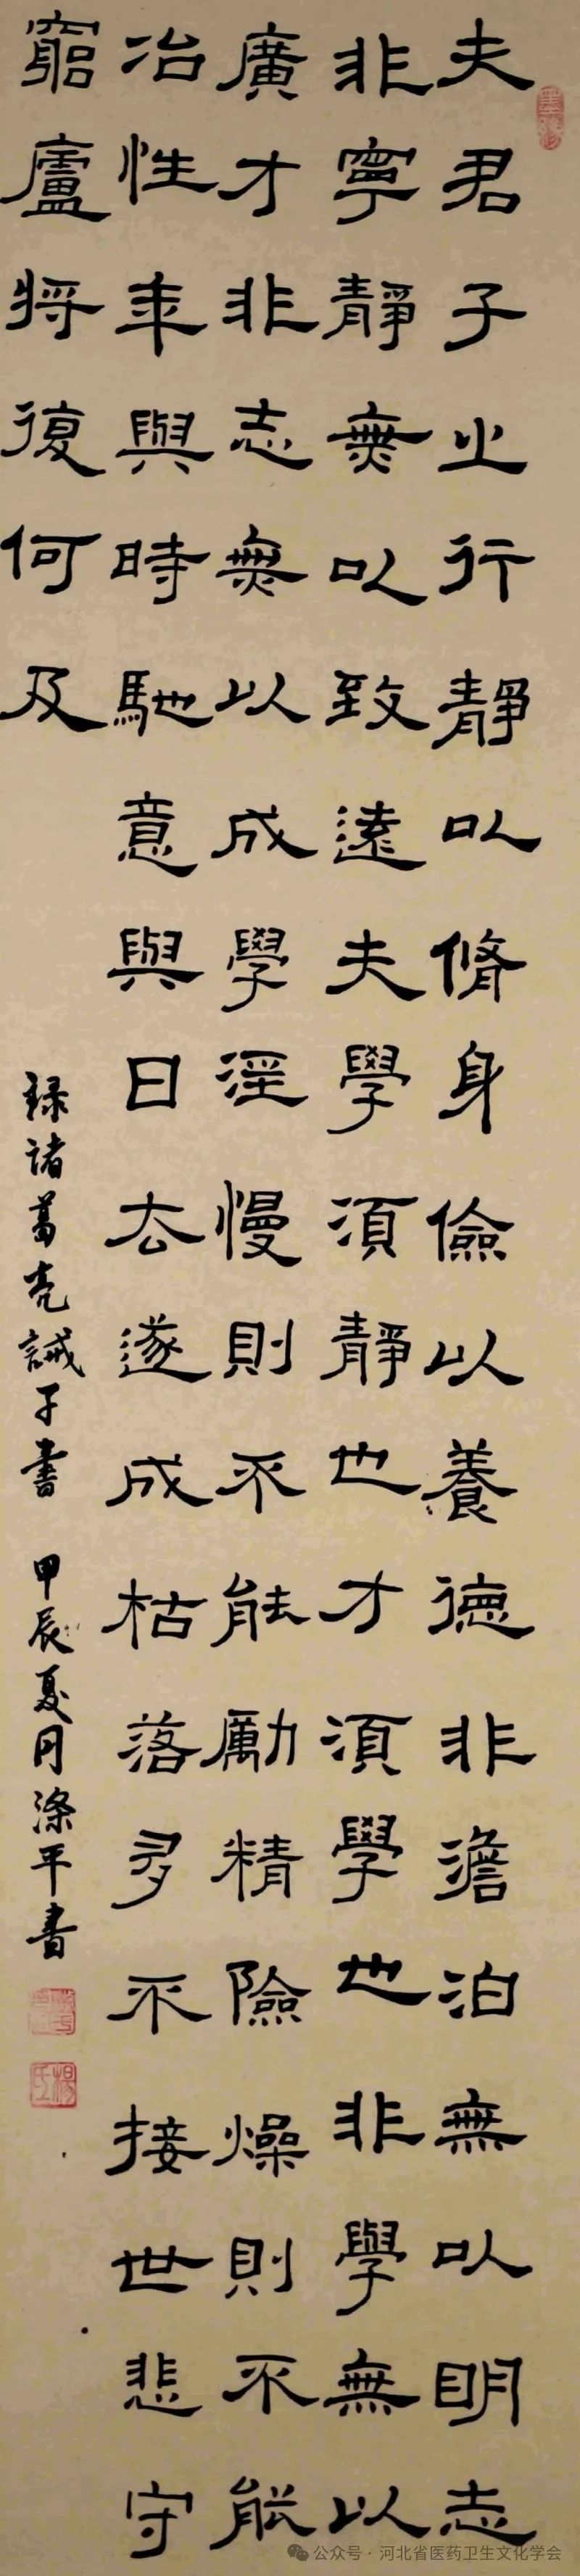 夫君子之行靜以脩身儉以養德非澹泊無以明志
非寧靜無以致遠夫學須靜也才須學也非學無以
廣才非志無以成學淫慢則不能勵精險燥則不能
冶性年與時馳意與日去遂成枯落多不接世悲守
窮廬將復何及
録諸葛亮誡子書 甲辰夏月滌平書
楊氏
公众号·河北省医药卫生文化学会